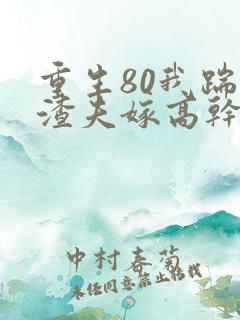 重生80我踹
渣夫嫁高幹
中村春菊
未经同意禁止转载